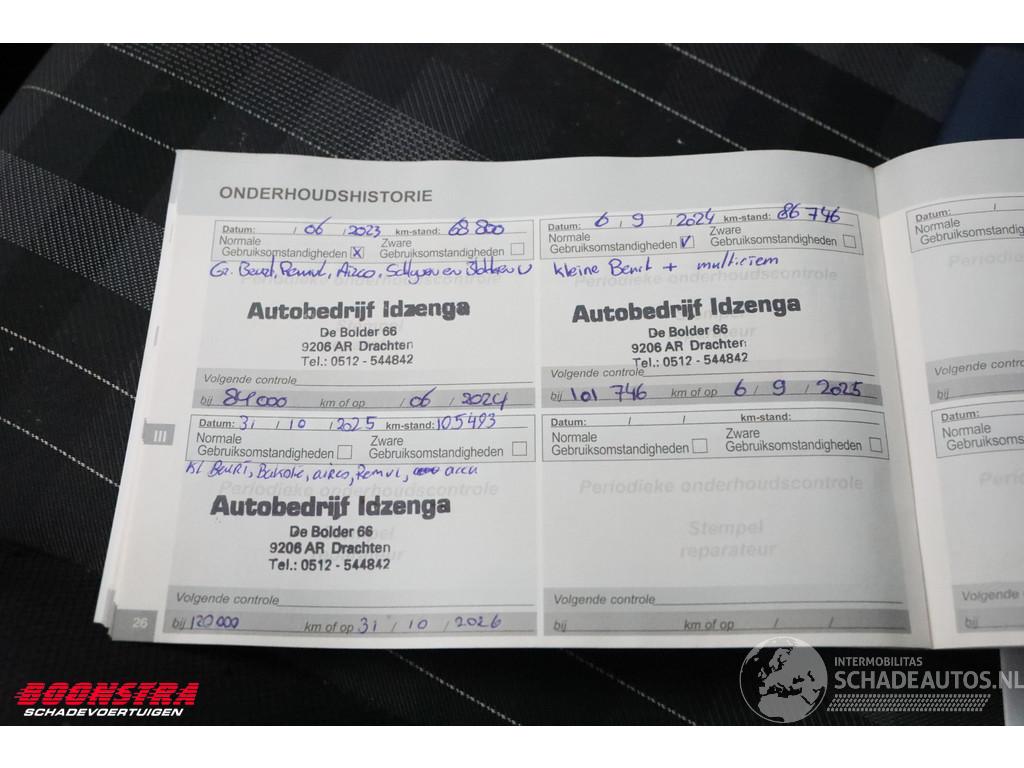 ONDERHOUDSHISTORIE
Datum: / 06 / 2023 km-stand: 68 800
Normale Gebruiksomstandigheden X Zware Gebruiksomstandigheden
Gr. Beurt, Remvl, Airco,
Autobedrijf Idzenga
De Bolder 66
9206 AR Drachten
Tel.: 0512 - 544842
Volgende controle
bij 84000 km of op / 06 / 2024
Datum: 6 / 9 / 2024 km-stand: 86 746
Normale Gebruiksomstandigheden V Zware Gebruiksomstandigheden
kleine Beurt + multiriem
Periodieke onderhoudscontrole
Autobedrijf Idzenga
De Bolder 66
9206 AR Drachten
Tel.: 0512 - 544842
Volgende controle
bij 101 746 km of op 6 / 9 / 2025
III
Datum: 31 / 10 / 2025 km-stand: 105493
Normale Gebruiksomstandigheden Zware Gebruiksomstandigheden
Kl Beurt, airco, Remvl, accu
Periodieke onderhoudscontrole
Autobedrijf Idzenga
De Bolder 66
9206 AR Drachten
Tel.: 0512 - 544842
Volgende controle
bij 120 000 km of op 31 / 10 / 2026
Datum: / / km-stand:
Normale Gebruiksomstandigheden Zware Gebruiksomstandigheden
Periodieke onderhoudscontrole
Stempel
reparateur
Volgende controle
bij km of op / /
26
Datum: /
Normale
Gebruiksomstandig
Datum:
Normale
Gebruiksomstandig
Volgende
bij
BOONSTRA
SCHADEVOERTUIGEN
INTERMOBILITAS
SCHADEAUTOS.NL